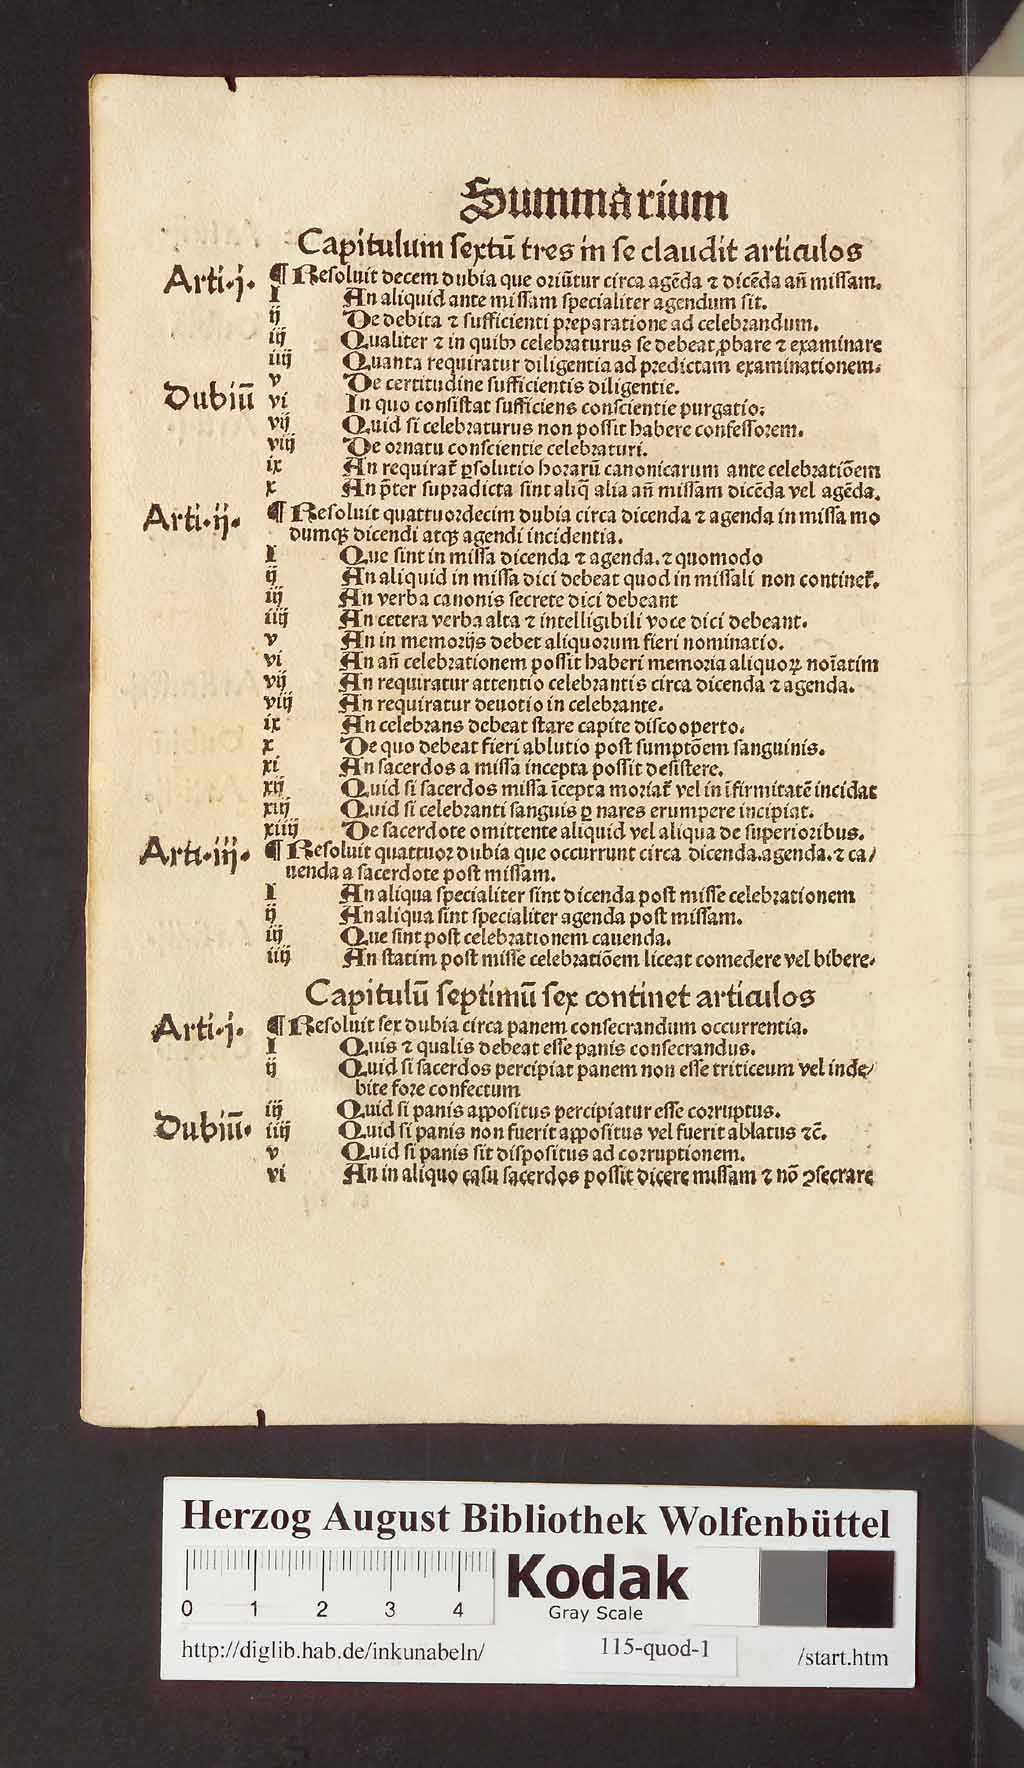 Summarium
Capitulum sextū tres in se claudit articulos
Arti·j· ¶ Resoluit decem dubia que oriūtur circa agēda ⁊ dicēda an̄ missam.
I An aliquid ante missam specialiter agendum sit.
ij De debita ⁊ sufficienti preparatione ad celebrandum.
iij Qualiter ⁊ in quibꝫ celebraturus se debeat ꝓbare ⁊ examinare
iiij Quanta requiratur diligentia ad predictam examinationem.
v De certitudine sufficientis diligentie.
Dubiū vi In quo consistat sufficiens conscientie purgatio.
vij Quid si celebraturus non possit habere confessorem.
viij De ornatu conscientie celebraturi.
ix An requirat᷑ ꝑsolutio horarū canonicarum ante celebratiōem
x An p̄ter supradicta sint aliq̄ alia an̄ missam dicēda vel agēda.
Arti·ij· ¶ Resoluit quattuordecim dubia circa dicenda ⁊ agenda in missa mo
dumqꝫ dicendi atqꝫ agendi incidentia.
I Que sint in missa dicenda ⁊ agenda. ⁊ quomodo
ij An aliquid in missa dici debeat quod in missali non continet᷑.
iij An verba canonis secrete dici debeant
iiij An cetera verba alta ⁊ intelligibili voce dici debeant.
v An in memorijs debet aliquorum fieri nominatio.
vi An an̄ celebrationem possit haberi memoria aliquoꝝ noīatim
vij An requiratur attentio celebrantis circa dicenda ⁊ agenda.
viij An requiratur deuotio in celebrante.
ix An celebrans debeat stare capite discooperto.
x De quo debeat fieri ablutio post sumptōem sanguinis.
xi An sacerdos a missa incepta possit desistere.
xij Quid si sacerdos missa īcepta moriat᷑ vel in īfirmitatē incidat
xiij Quid si celebranti sanguis ꝑ nares erumpere incipiat.
xiiij De sacerdote omittente aliquid vel aliqua de superioribus.
Arti·iij· ¶ Resoluit quattuor dubia que occurrunt circa dicenda. agenda. ⁊ ca/
uenda a sacerdote post missam.
I An aliqua specialiter sint dicenda post misse celebrationem
ij An aliqua sint specialiter agenda post missam.
iij Que sint post celebrationem cauenda.
iiij An statim post misse celebratiōem liceat comedere vel bibere.
Capitulū septimū sex continet articulos
Arti·j· ¶ Resoluit sex dubia circa panem consecrandum occurrentia.
I Quis ⁊ qualis debeat esse panis consecrandus.
ij Quid si sacerdos percipiat panem non esse triticeum vel inde/
bite fore confectum
iij Quid si panis appositus percipiatur esse corruptus.
Dubiū. iiij Quid si panis non fuerit appositus vel fuerit ablatus ⁊c̄.
v Quid si panis sit dispositus ad corruptionem.
vi An in aliquo casu sacerdos possit dicere missam ⁊ nō ↄsecrare
Herzog August Bibliothek Wolfenbüttel
0 1 2 3 4
Kodak
Gray Scale
http://diglib.hab.de/inkunabeln/ 115-quod-1 /start.htm